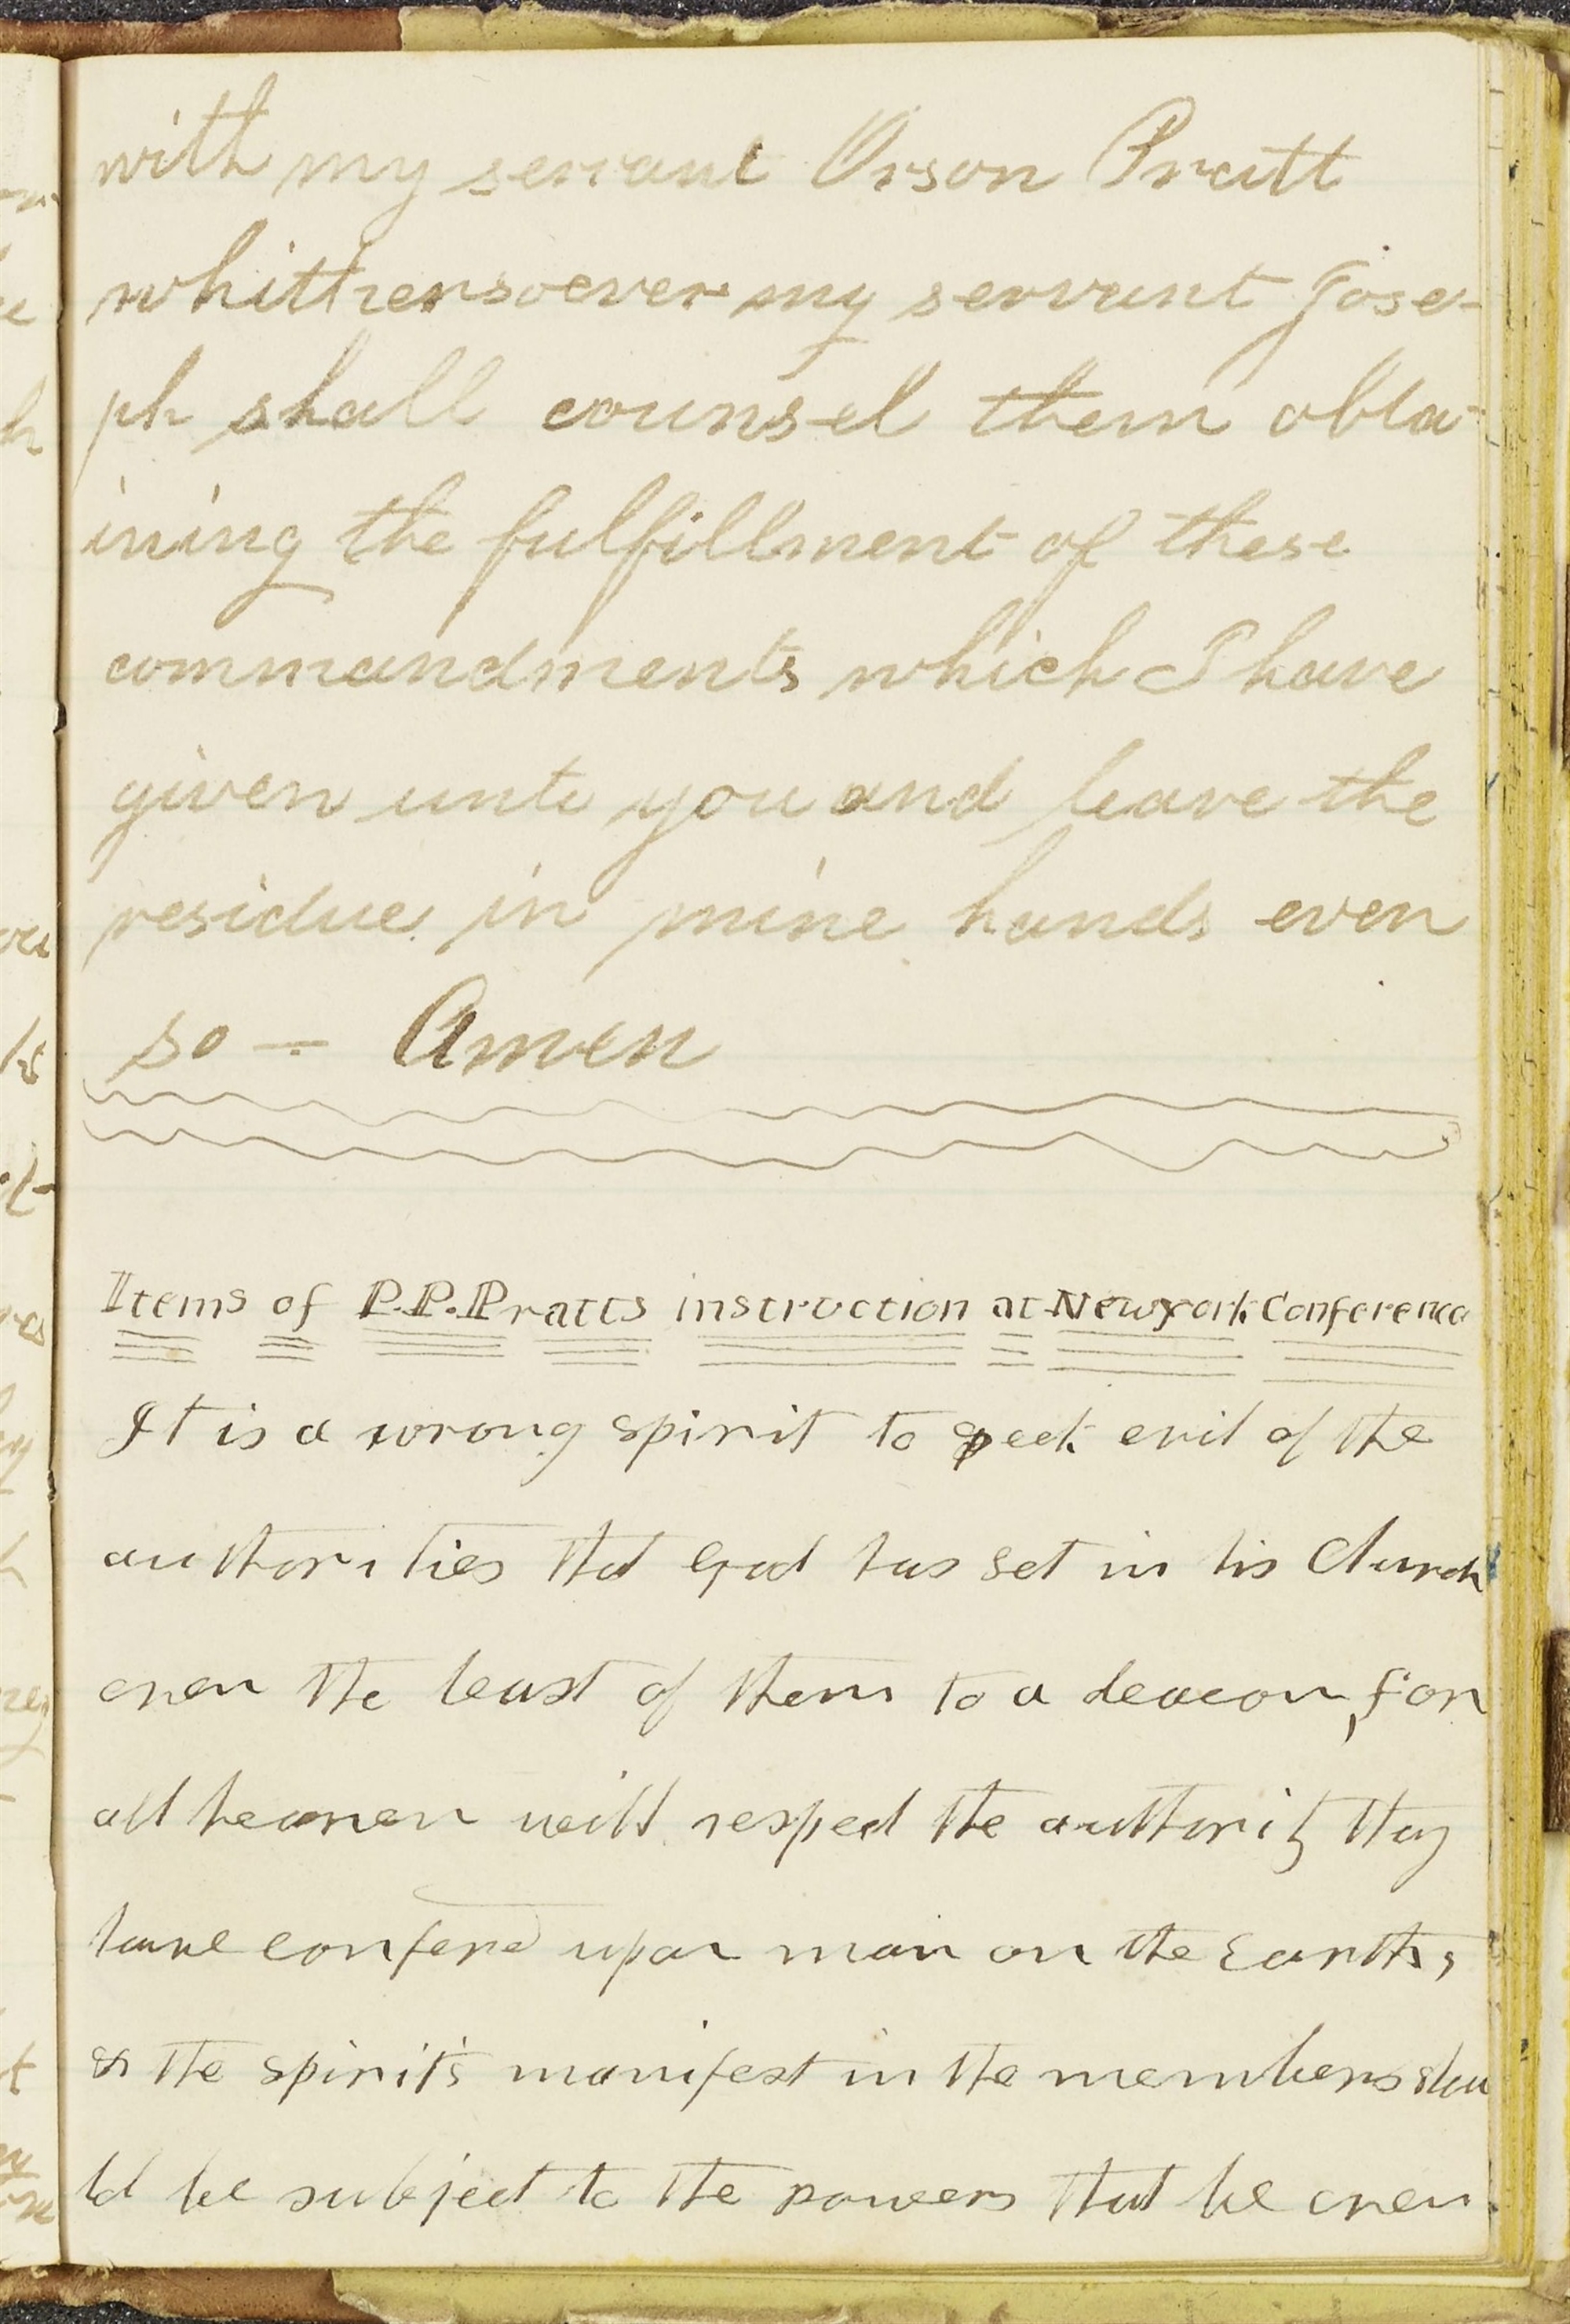 with my servant Orson Pratt
whithersoever my servant Jose-
ph shall counsel them obta-
ining the fulfillment of these
commandments which I have
given unto you and leave the
residue in mine hands even
so — Amen
Items of P.P.Pratts instruction at Newyork Conference
It is a wrong spirit to speek evil of the
authorities that God has set in his Church
even the least of them to a deacon, for
all heaven will respect the authority they
have confered upon man on the Earth,
& the spirits manifest in the members shou
ld be subject to the powers that be even